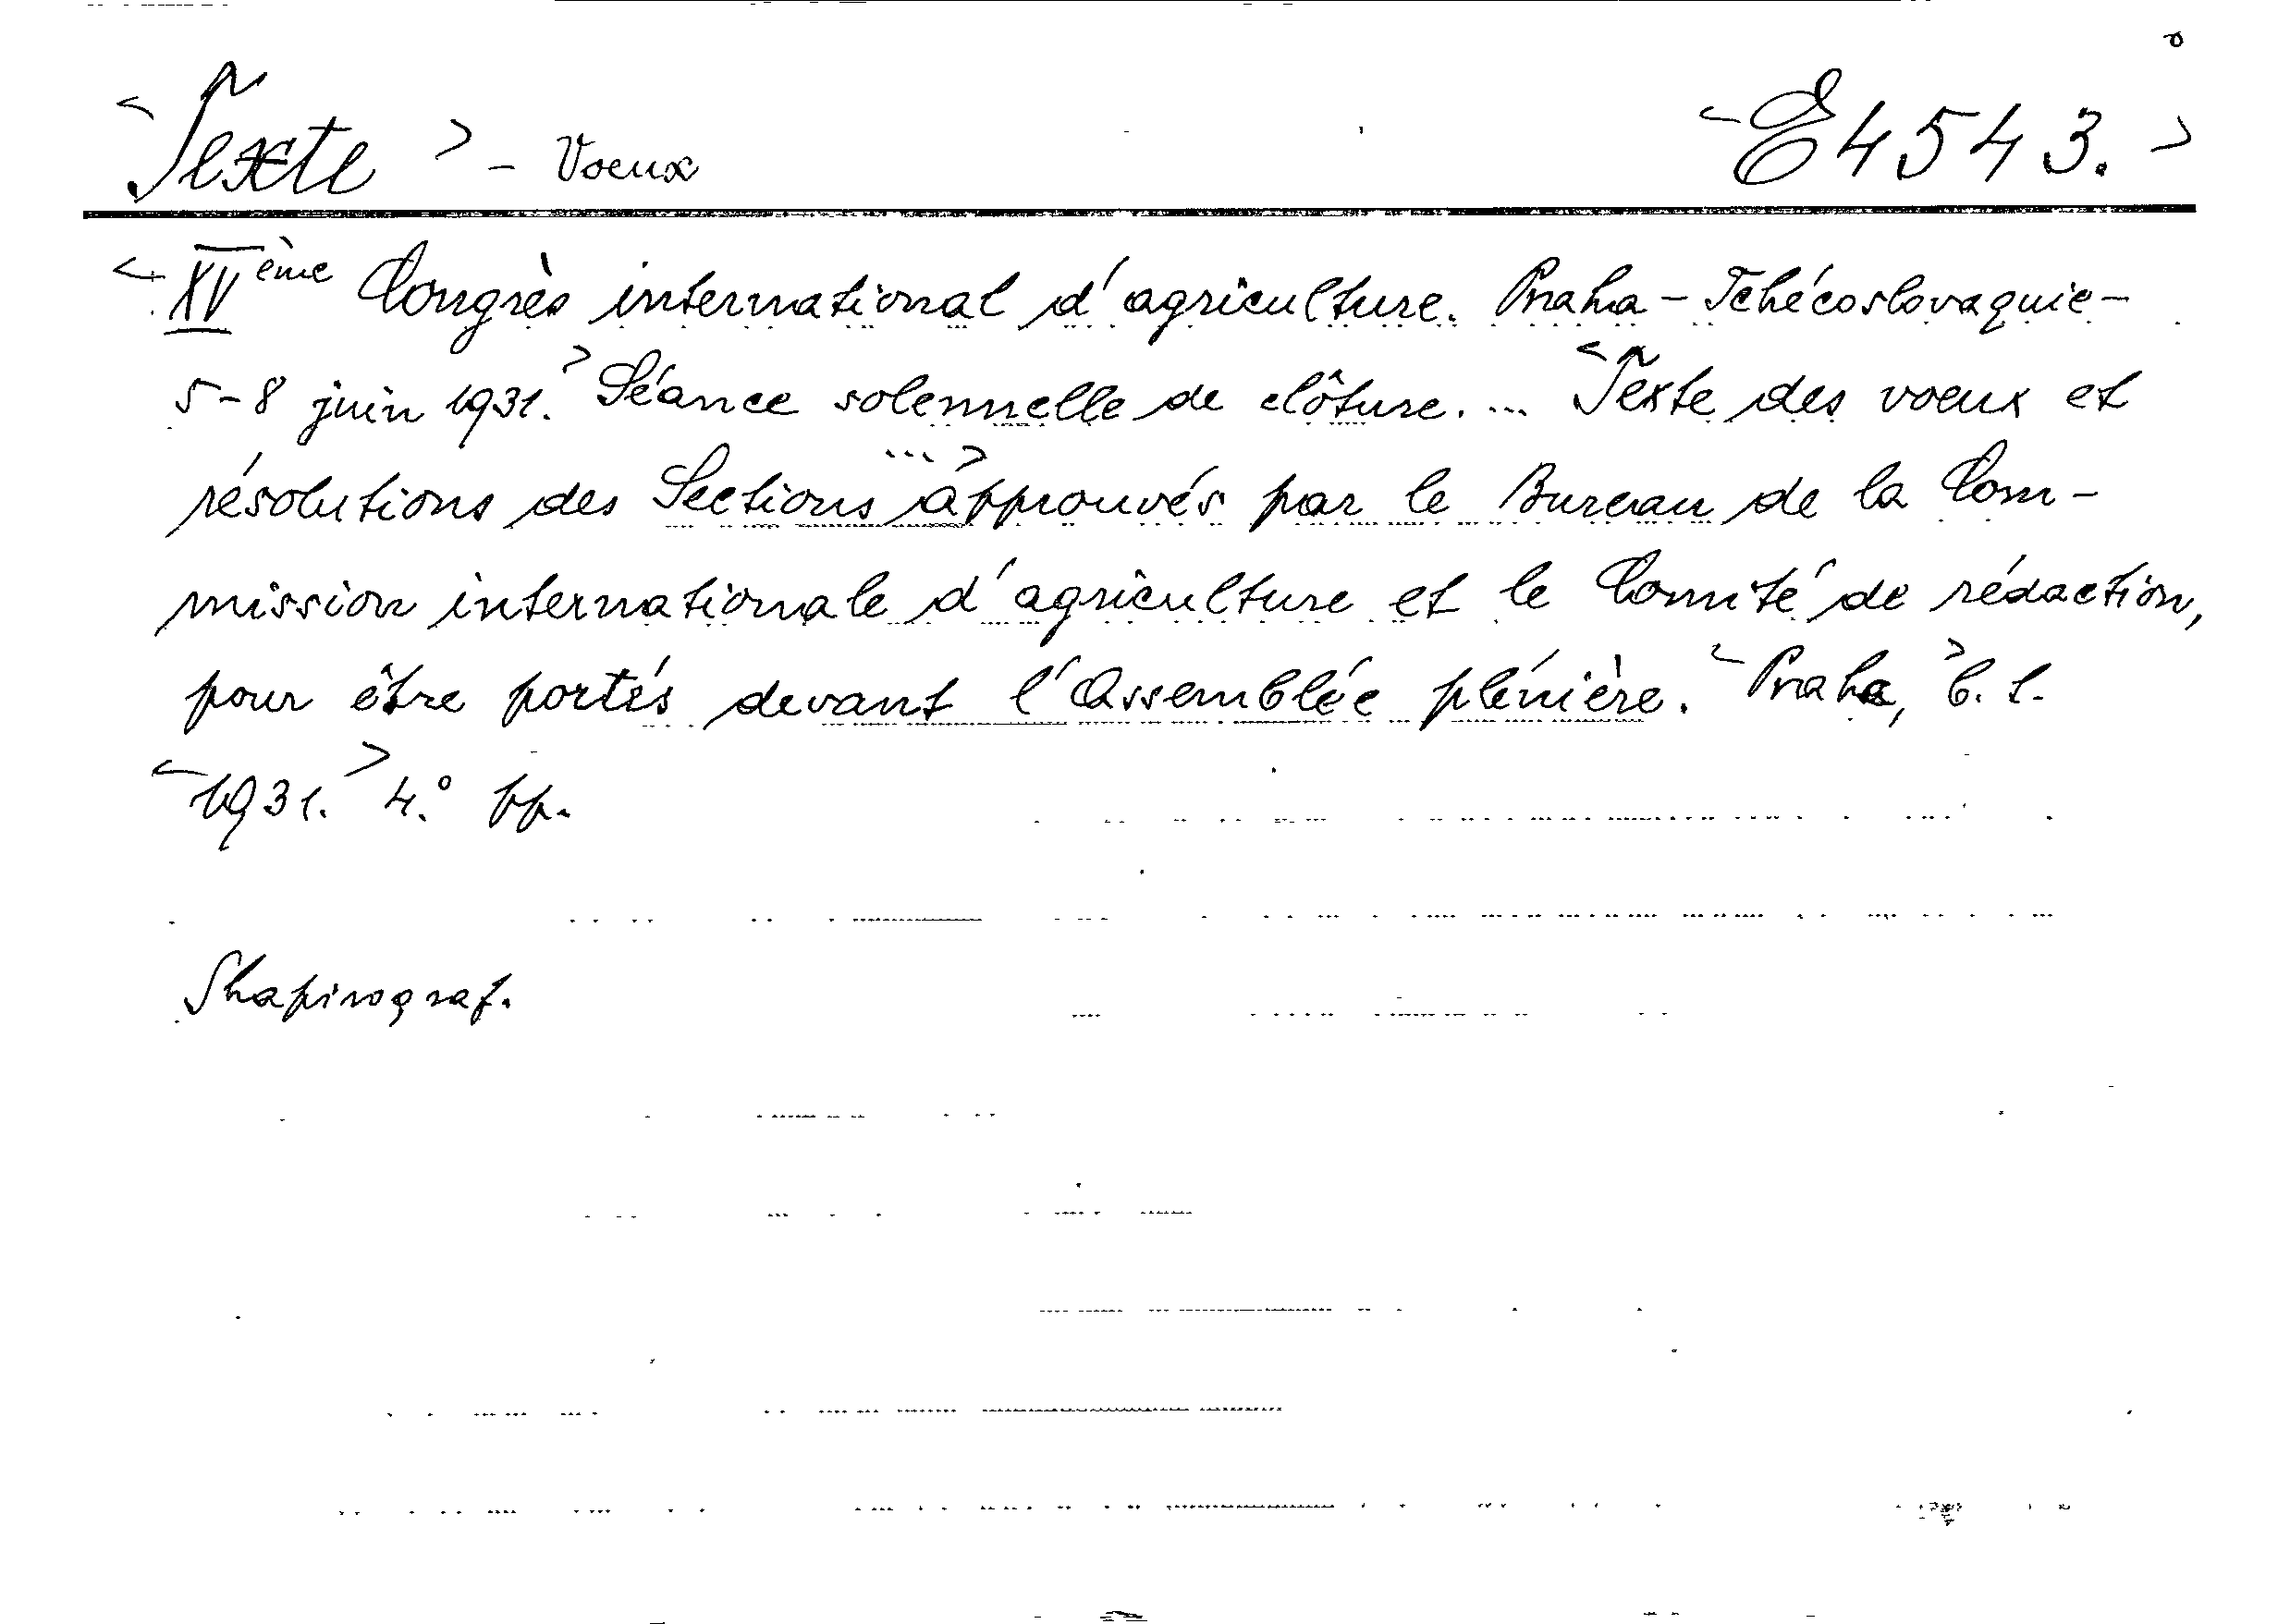 <Texte> - Voeux <E4543.>
<XVème Congrès international d'agriculture. Praha - Tchécoslovaquie -
5-8 juin 1931.> Séance solennelle de clôture. ... <Texte des voeux et
résolutions des Sections ...> approuvés par le Bureau de la Com-
mission internationale d'agriculture et le Comité de rédaction,
pour être portés devant l'Assemblée plénière. <Praha,> b. t.
<1931.> 4.° pp.
Shapirograf.